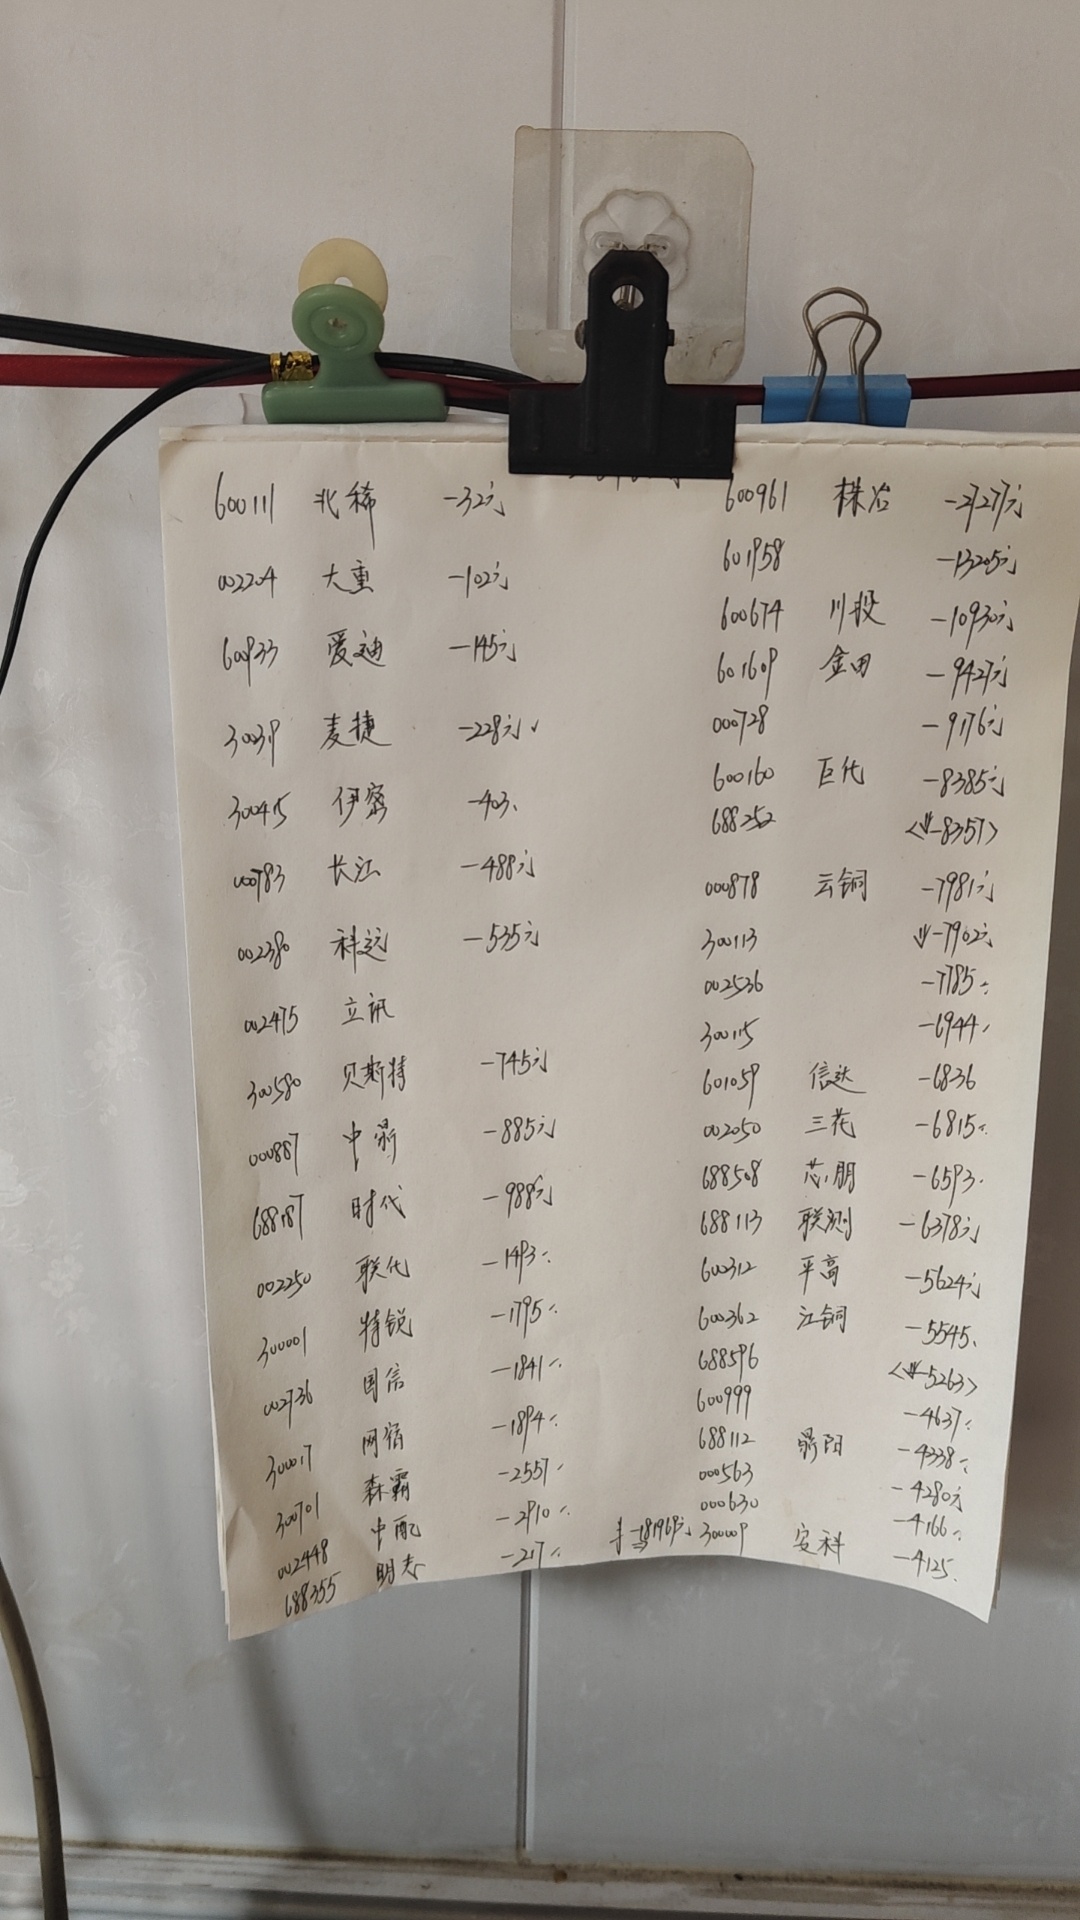 600111 北稀 -32元
002204 大重 -102元
600933 爱迪 -145元
300319 麦捷 -228元
300415 伊密 -403.
000783 长江 -488元
002380 科远 -535元
002475 立讯
300580 贝斯特 -745元
000887 中鼎 -885元
688187 时代 -988元
002250 联化 -1493
300001 特锐 -1795
002736 国信 -1841
300017 网宿 -1894
300701 森霸 -2557
002448 中配 -2910
688355 明志 -217
600961 株冶
601958 -13205元
600674 川投 -10930元
601609 金田 -9427元
000728 -9176元
600160 巨化 -8385元
688252 -8357
000878 云铜 -7981元
300113 -7902元
002536 -7785
300115 -6944
601059 信达 -6836
002050 三花 -6815
688508 芯朋 -6593
688113 联测 -6378元
600312 平高 -5624元
600362 江铜 -5545
688596 -5263
600999 -4637
688112 鼎阳 -4338
000563 -4280元
000630 -4166
300009 安科 -4125